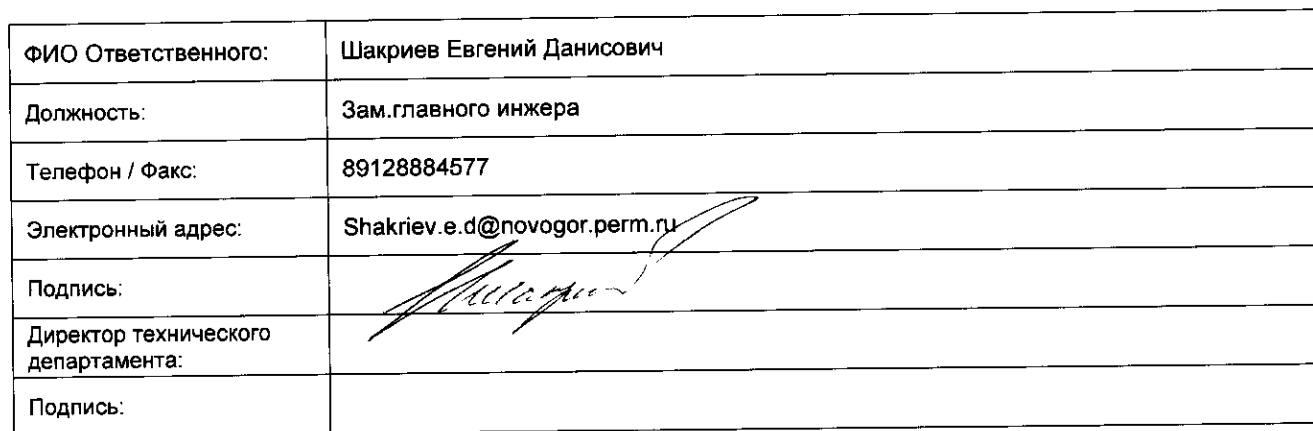 ФИО Ответственного: Шакриев Евгений Данисович
Должность: Зам.главного инжера
Телефон / Факс: 89128884577
Электронный адрес: Shakriev.e.d@novogor.perm.ru
Подпись:
Директор технического
департамента:
Подпись: